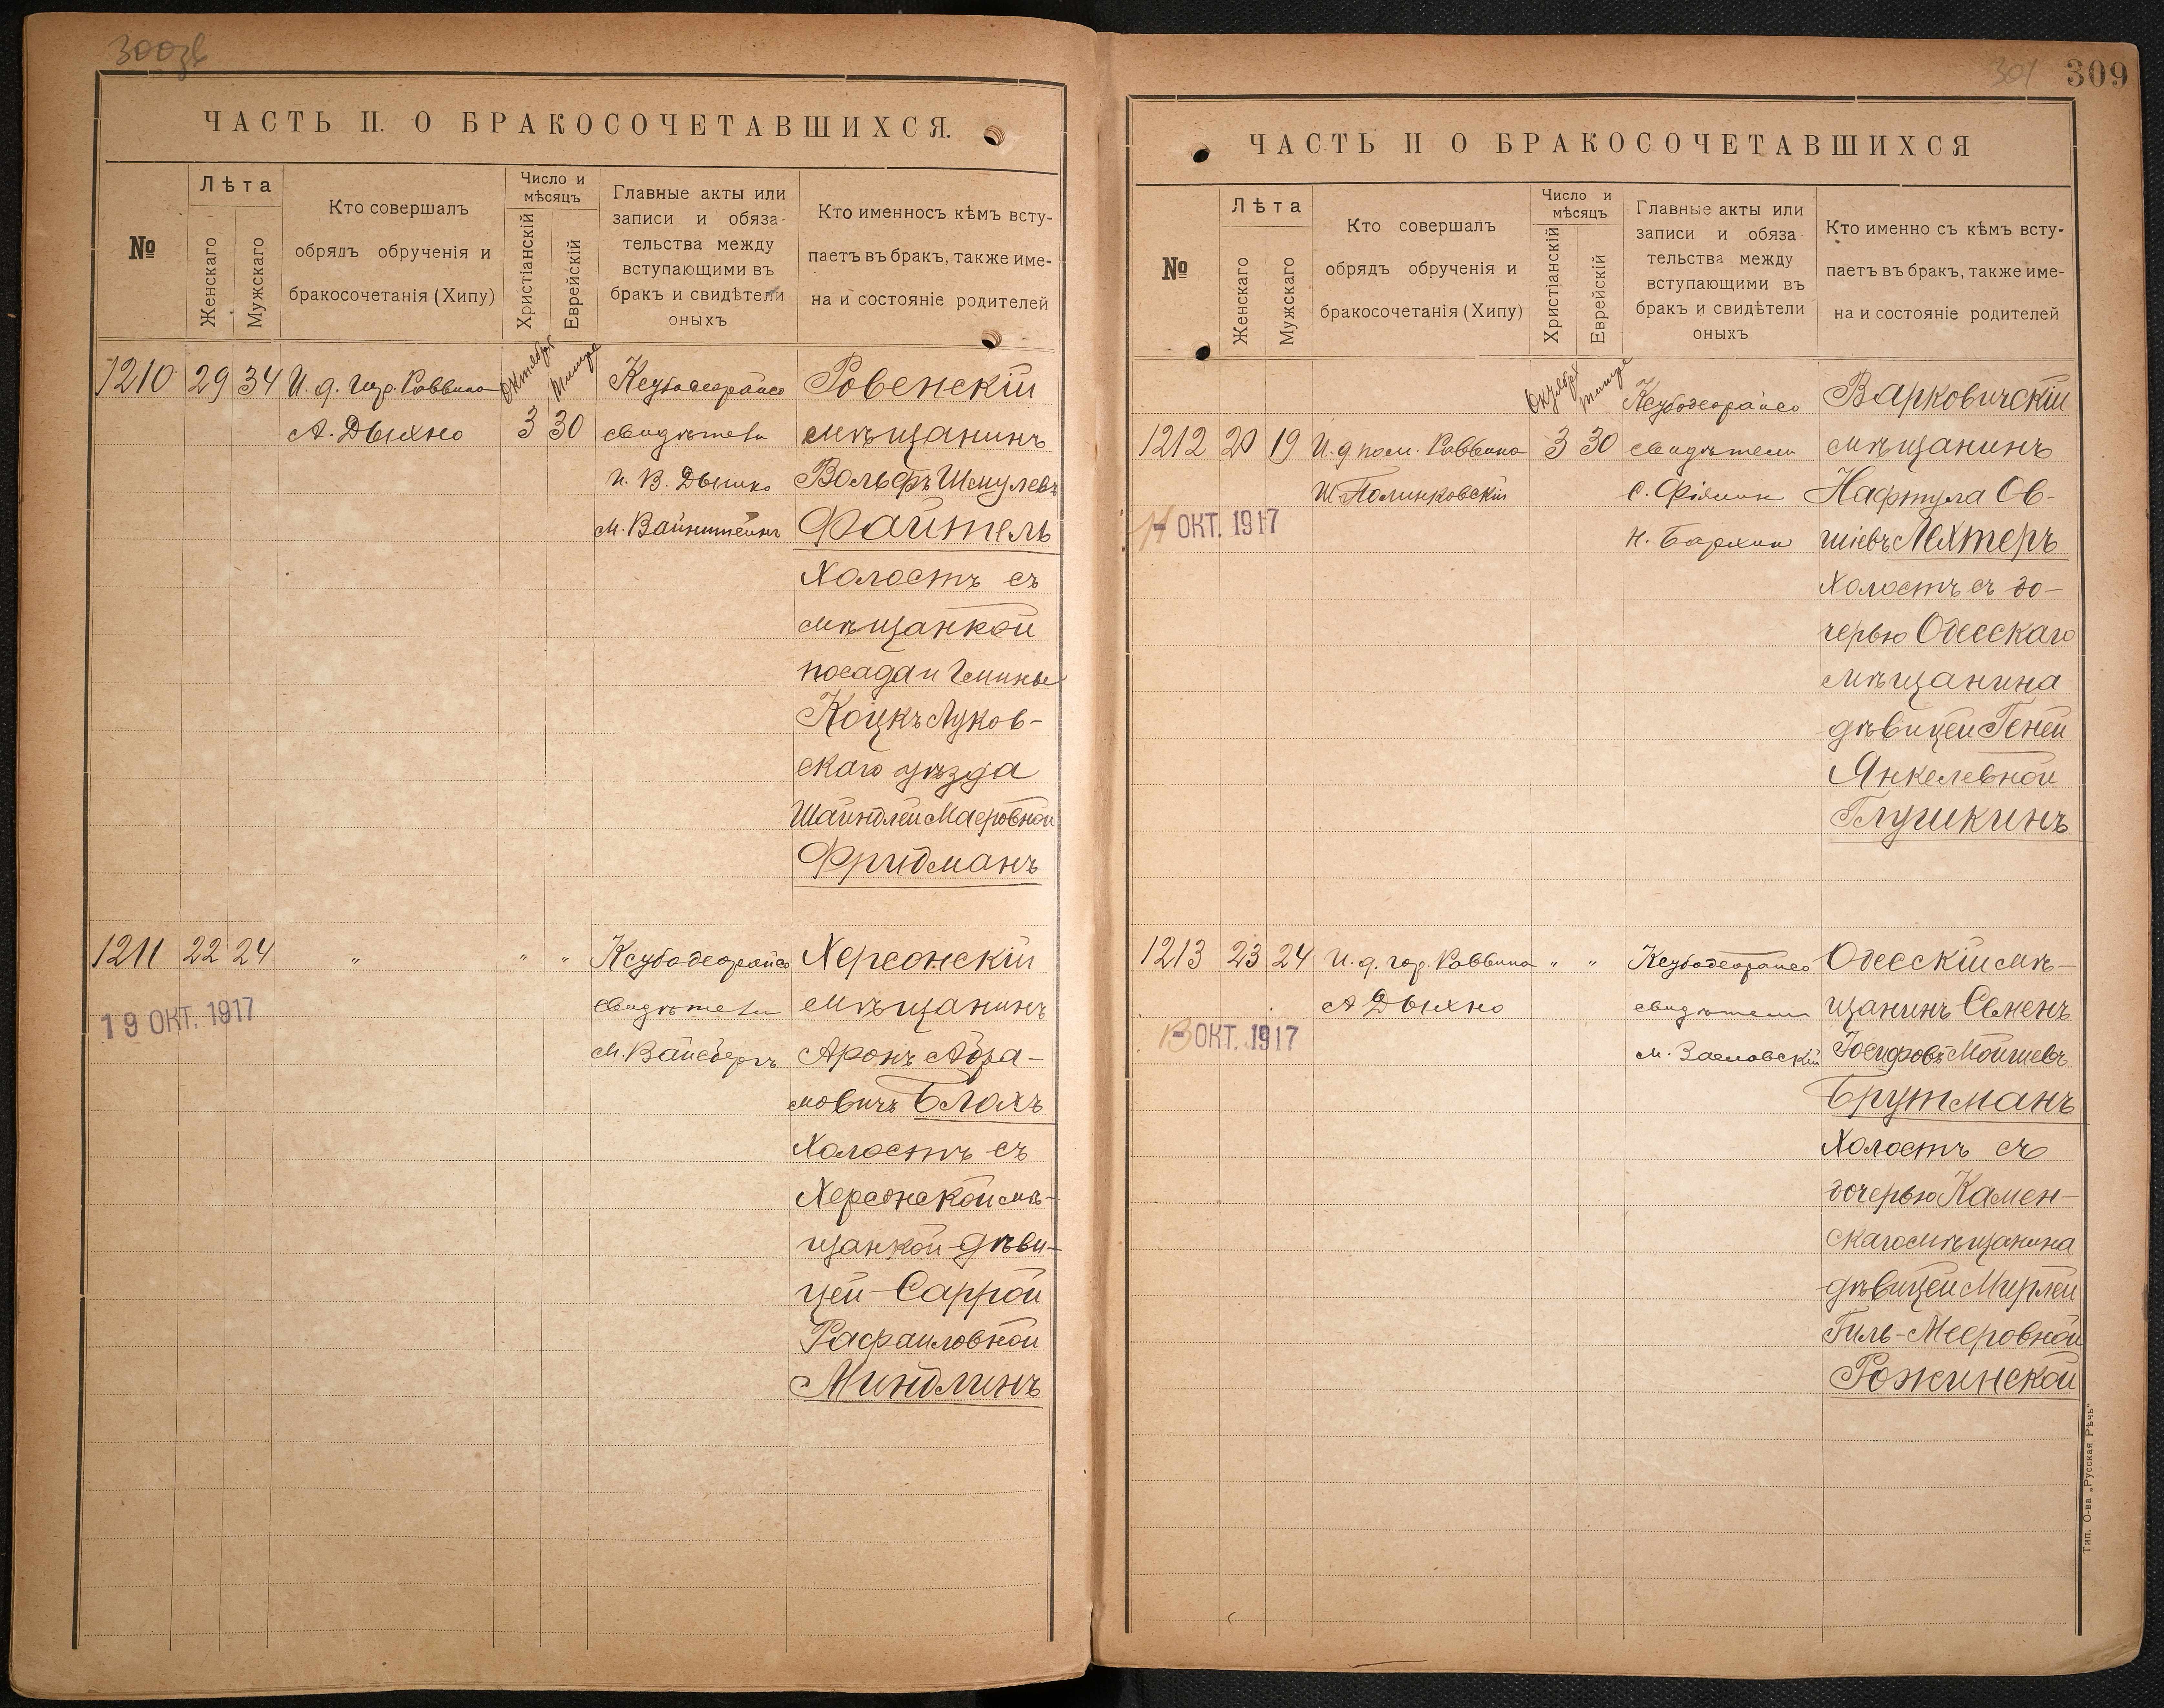 300 об
ЧАСТЬ II. О БРАКОСОЧЕТАВШИХСЯ.
№
Лѣта
Женскаго
Мужскаго
Кто совершалъ
обрядъ обрученія и
бракосочетанія (Хипу)
Число и
мѣсяцъ
Христіанскій
Еврейскій
Главные акты или
записи и обяза-
тельства между
вступающими въ
бракъ и свидѣтели
оныхъ
Кто именносъ кѣмъ всту-
паетъ въ бракъ, также име-
на и состояніе родителей
1210 29 34
И. д. гор. Раввина
А. Дыхно
Октября
3
Тишре
30
Ксубодеорайсо
свидѣтели
М. Вайнштейнъ
Ровенскій
мѣщанинъ
Вольфъ Шмулевъ
Файтель
Холостъ съ
мѣщанкой
посада и Гмины
Коцкъ Луков-
скаго уѣзда
Шайндлей Маеровной
Фридманъ
1211 22 24 " " "
19 ОКТ. 1917
Ксубодеорайсо
свидѣтели
М. Вайсбергъ
Херсонскій
мѣщанинъ
Аронъ Абра-
мовичъ Блохъ
Холостъ съ
Херсонской мѣ-
щанкой-дѣви-
цей-Саррой
Рафаиловной
Миндлинъ
301
309
ЧАСТЬ II О БРАКОСОЧЕТАВШИХСЯ
№
Лѣта
Женскаго
Мужскаго
Кто совершалъ
обрядъ обрученія и
бракосочетанія (Хипу)
Число и
мѣсяцъ
Христіанскій
Еврейскій
Главные акты или
записи и обяза
тельства между
вступающими въ
бракъ и свидѣтели
оныхъ
Кто именно съ кѣмъ всту-
паетъ въ бракъ, также име-
на и состояніе родителей
1212 20 19
И. д. пом. Раввина
Ш. Полинковскій
ОКТ. 1917
Октября
3
Тишре
30
Ксубодеорайсо
свидѣтели
Варковичскій
мѣщанинъ
Нафтула Ов-
шіевъ Лехтеръ
Холостъ съ до-
черью Одесскаго
мѣщанина
дѣвицей Геней
Янкелевной
Глушкинъ
1213 23 24
И. д. гор. Раввина
А Дыхно
" "
ОКТ. 1917
Ксубодеорайсо
свидѣтели
М. Заславскій
Одесскій мѣ-
щанинъ Семенъ
Іосифовъ Мойшевъ
Брутманъ
Холостъ съ
дочерью Камен-
скаго мѣщанина
дѣвицей Мирлей
Гиль-Мееровной
Рожинской
Тип. О-ва „Русская Рѣчь"